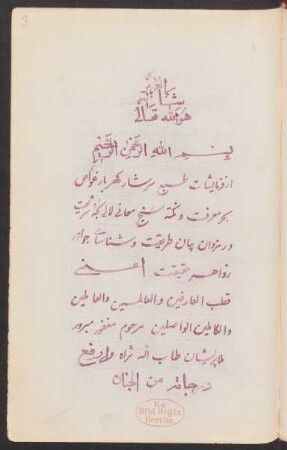 3
شأنه العزیز
هو الله تعالی
بسم الله الرحمن الرحیم
از فرمایشات طبع سرشار گهربار غواص
بحر معرفت و نکته سنج معانی لالی شریعت
و رمزدان بیان طریقت و شناسای جواهر
زواهر حقیقت اعنی
قطب العارفین والعالمین والعاملین
والکاملین الواصلین مرحوم مغفور مبرور
ملا پریشان طاب الله ثراه و رفع
درجاته من الجنان
Ex
Bibl. Regia
Berolin.